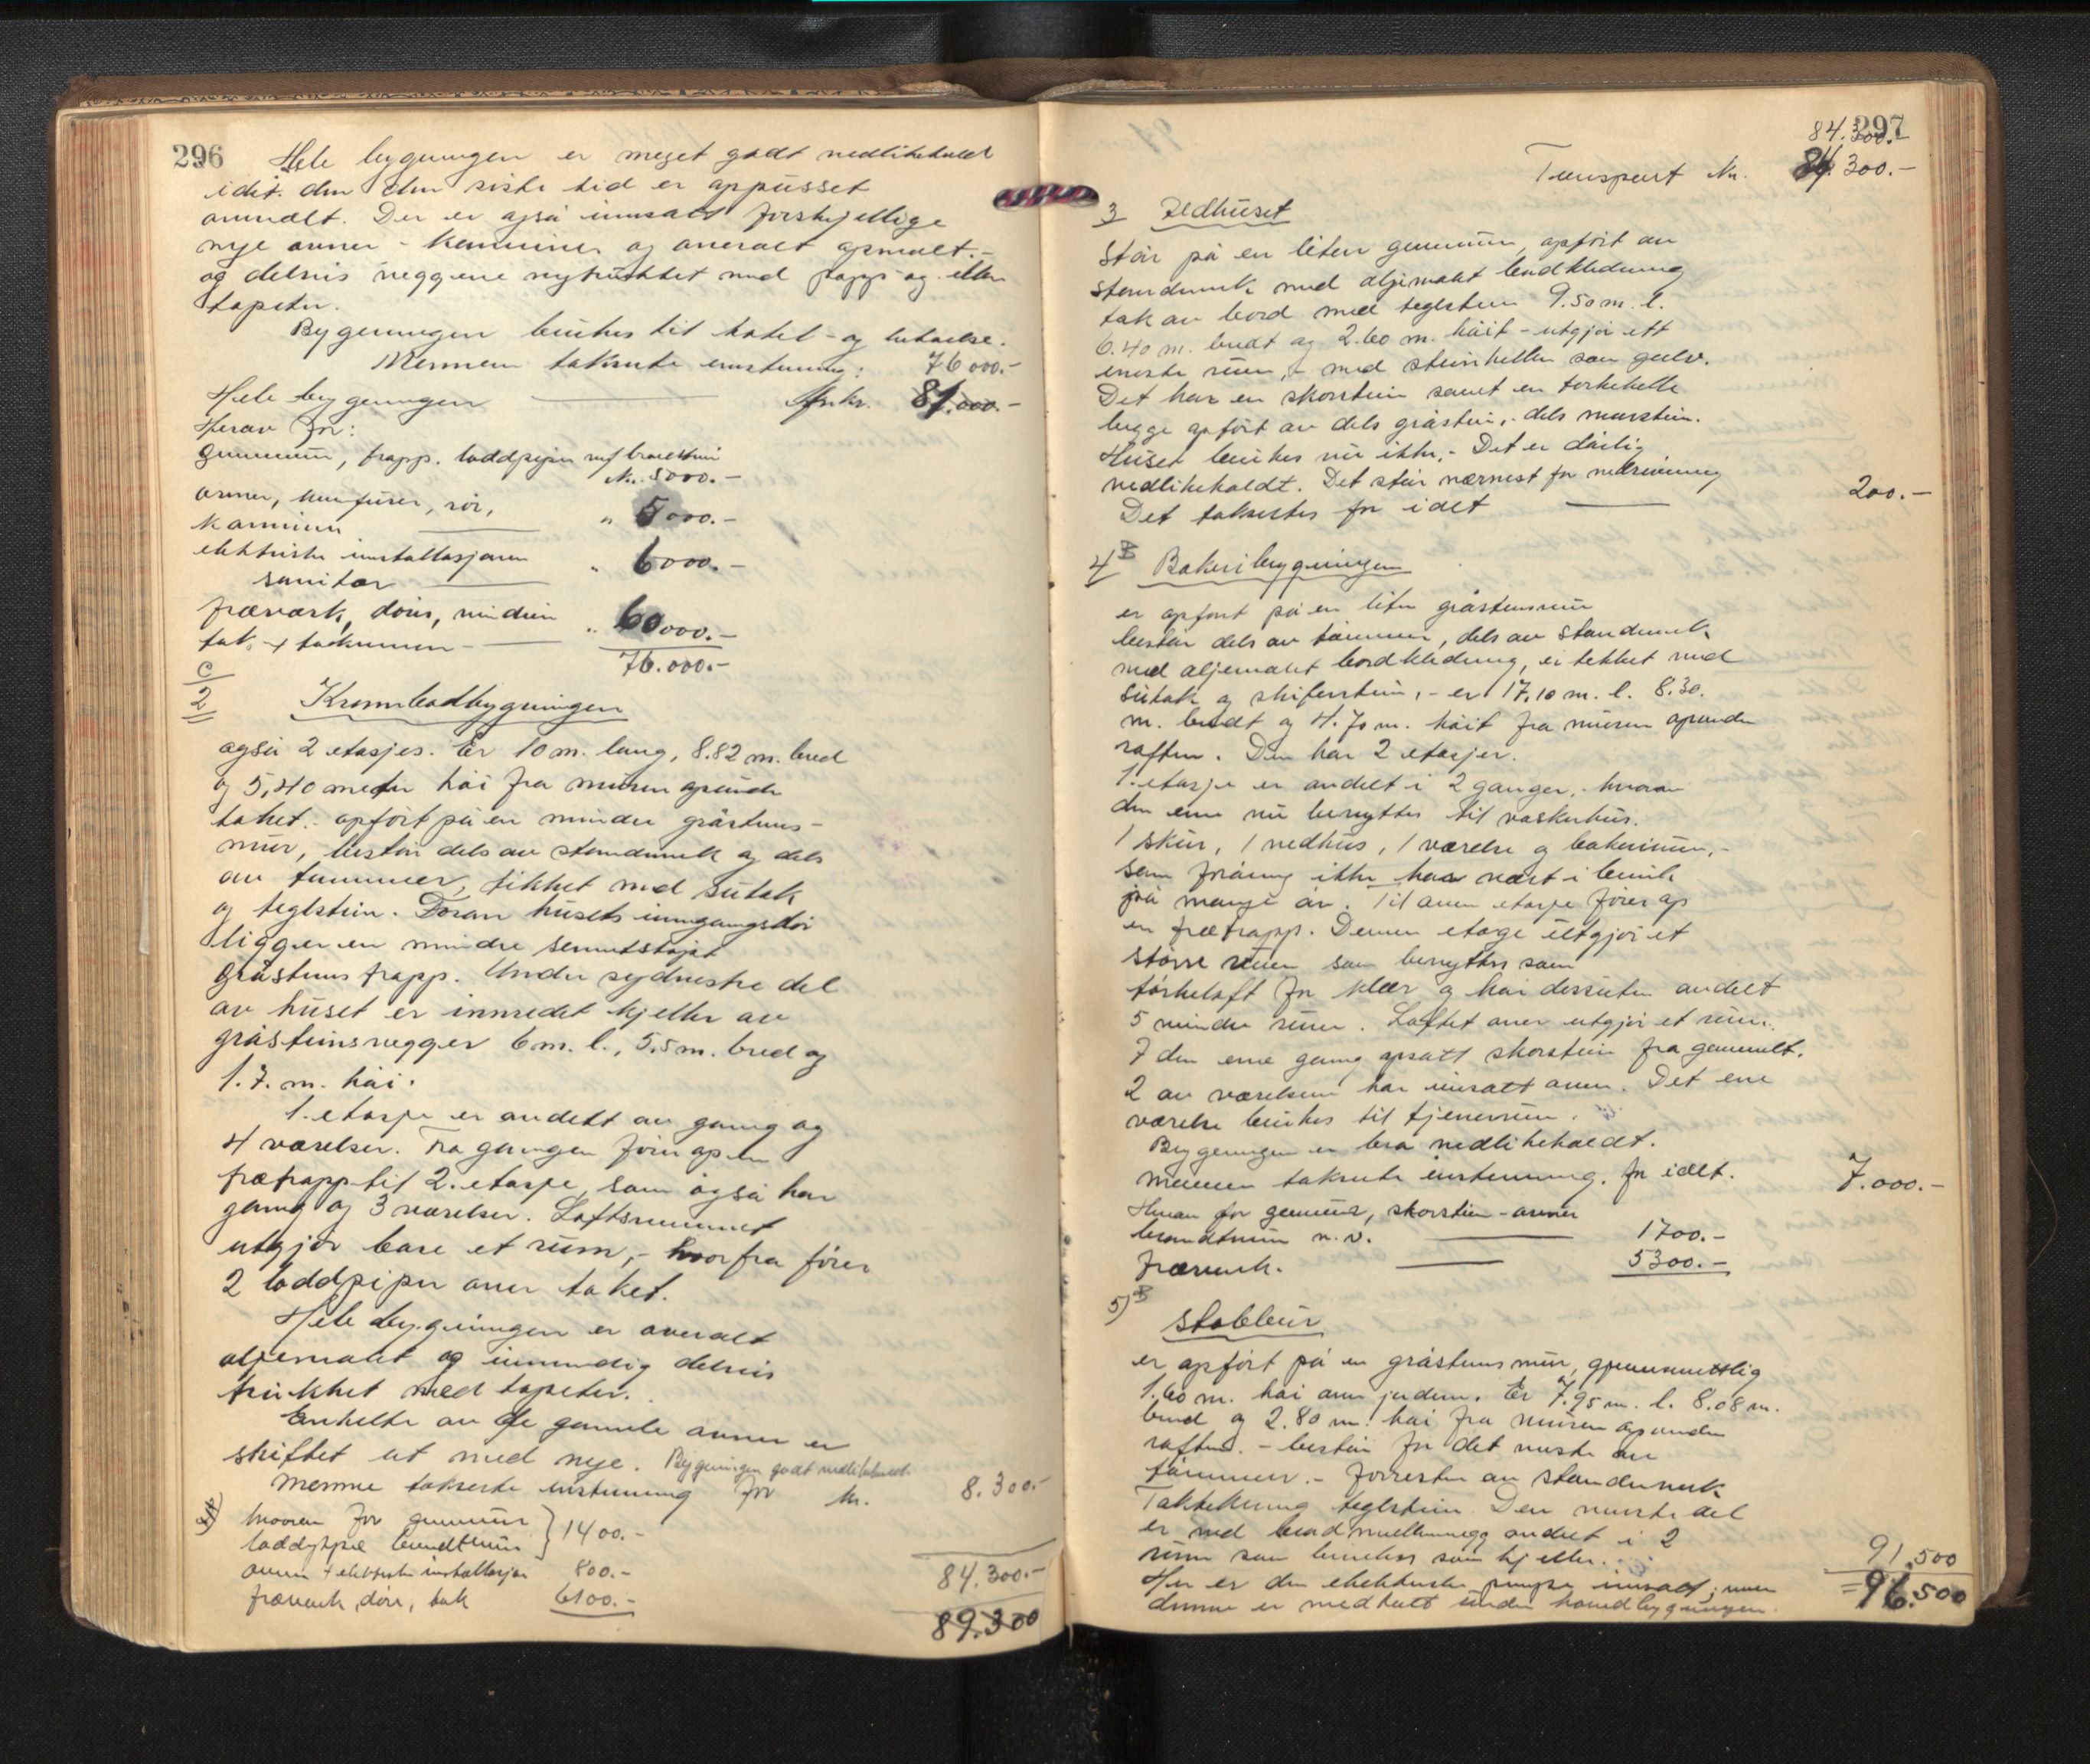 296
Hele bygningen er meget godt vedlikeholdt
idet den i den siste tid er oppusset
overalt. Der er også innsatt forskjellige
nye ovner - kaminer og overalt opmalt.-
og delvis veggene nytrukket med papp og eller
tapeter.
Bygningen brukes til hotel - og beboelse.
Mennene takserte enstemmig: 76000.-
Hele bygningen for kr. 81.000.-
Herav for:
grunmur, trapp. loddpiper m/ brandmur
Kr. 5000.-
ovner, komfurer, rør,
kaminer " 5000.-
elektriske installasjoner
sanitær " 6000.-
træværk, dører, vinduer
tak. + takrenner - " 60000.-
76.000.-
C
2
Krambodbygningen
også 2 etasjes. Er 10 m. lang, 8.82 m. bred
og 5,40 meter høi fra muren opunder
taket. opført på en mindre gråstens-
mur, består dels av stenderverk og dels
av tømmer, tekket med sutak
og teglstein. Foran husets inngangsdør
ligger en mindre sementstøpt
gråstens trapp. Under sydvestre del
av huset er innredet kjeller av
gråsteinsvegger 6 m. l., 5,5 m. bred og
1.7. m. høi.
1. etasje er avdelt av gang og
4 værelser. Fra gangen fører op en
trætrapp til 2. etasje, som også har
gang og 3 værelser. Loftsrummet
utgjør bare et rum,- hvorfra fører
2 loddpiper over taket.
Hele bygningen er overalt
oljemalt og innvendig delvis
trukket med tapeter.
Enkelte av de gamle ovner er
skiftet ut med nye. Bygningen godt vedlikeholdt.
Mennene takserte enstemmig for kr. 8.300.-
hvorav for grunmur
loddpipe brandmur } 1400.-
ovner + elektriske installasjon 800.-
træverk, dører, tak 6100.-
84.300.-
89.300
297
84.300.-
Transport Kr. 84.300.-
3 Ildhuset
Står på en liten grunmur, opført av
stenderverk med oljemalt bordkledning
tak av bord med teglsten 9.50 m. l.
6.40 m. bredt og 2.60 m. høit - utgjør ett
eneste rum,- med steinheller som gulv.
Det har en skorstein samt en tørkehelle
begge opført av dels gråstein,- dels murstein.
Huset brukes nu ikke.- Det er dårlig
vedlikeholdt. Det står nærmest for nedrivning
Det taksertes for i det 200.-
4 B Bakeribygningen
er opført på en liten gråstensmur
består dels av tømmer, dels av stenderverk
med oljemalt bordkledning, er tekket med
sutak og skiferstein,- er 17,10 m. l. 8.30.
m. bredt og 4.70 m. høit fra muren opunder
raften. Den har 2 etasjer.
1. etasje er avdelt i 2 ganger,- hvorav
den ene nu benyttes til vaskehus.
1 skur, 1 vedhus, 1 værelse og bakerirum,-
som forøvrig ikke har vært i bruk
på mange år. Til annen etasje fører op
en trætrapp. Denne etasje utgjør et
større rum som benyttes som
tørkeloft for klær og har dessuten avdelt
5 mindre rum. Loftet over utgjør et rum.
I den ene gang opsatt skorstein fra gammelt.
2 av værelsene har innsatt ovn. Det ene
værelse brukes til tjenerrum.
Bygningen er bra vedlikeholdt.
Mennene takserte enstemmig. for i det. 7.000.-
Herav for grunmur, skorstein - ovner
brandmur m. v. 1700.-
træverk. 5300.-
5) B
Stabbur
er opført på en gråstens mur, gjennemsnittlig
1.60 m. høi over jorden. Er 7.95 m. l. 8.08 m.
bred og 2.80 m. høi fra muren opunder
raften. - består for det meste av
tømmer.- forresten av stenderverk
Taktekning teglstein. Den nederste del
er ved bord mellemvegg avdelt i 2
rum som benyttes som kjeller.
Her er den elektriske pumpe innsatt; men
denne er medtatt under hovedbygningen.
91.500
=96.500